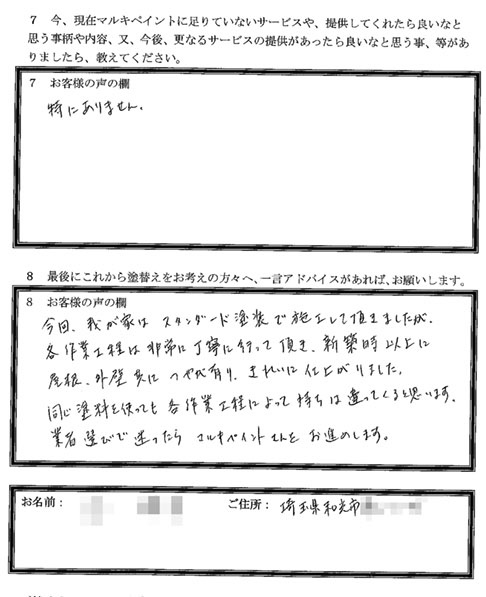 7 今、現在マルキペイントに足りていないサービスや、提供してくれたら良いなと
思う事柄や内容、又、今後、更なるサービスの提供があったら良いなと思う事、等があ
りましたら、教えてください。
7 お客様の声の欄
特にありません。
8 最後にこれから塗替えをお考えの方々へ、一言アドバイスがあれば、お願いします。
8 お客様の声の欄
今回、我が家は スタンダード塗装で施工して頂きましたが、
各作業工程は非常に丁寧に行って頂き、新築時以上に
屋根、外壁共に つやが有り、きれいに仕上がりました。
同じ塗料を使っても各作業工程によって持ちは違ってくると思います。
業者選びで迷ったら マルキペイントさんを お進めします。
お名前：
ご住所： 埼玉県和光市